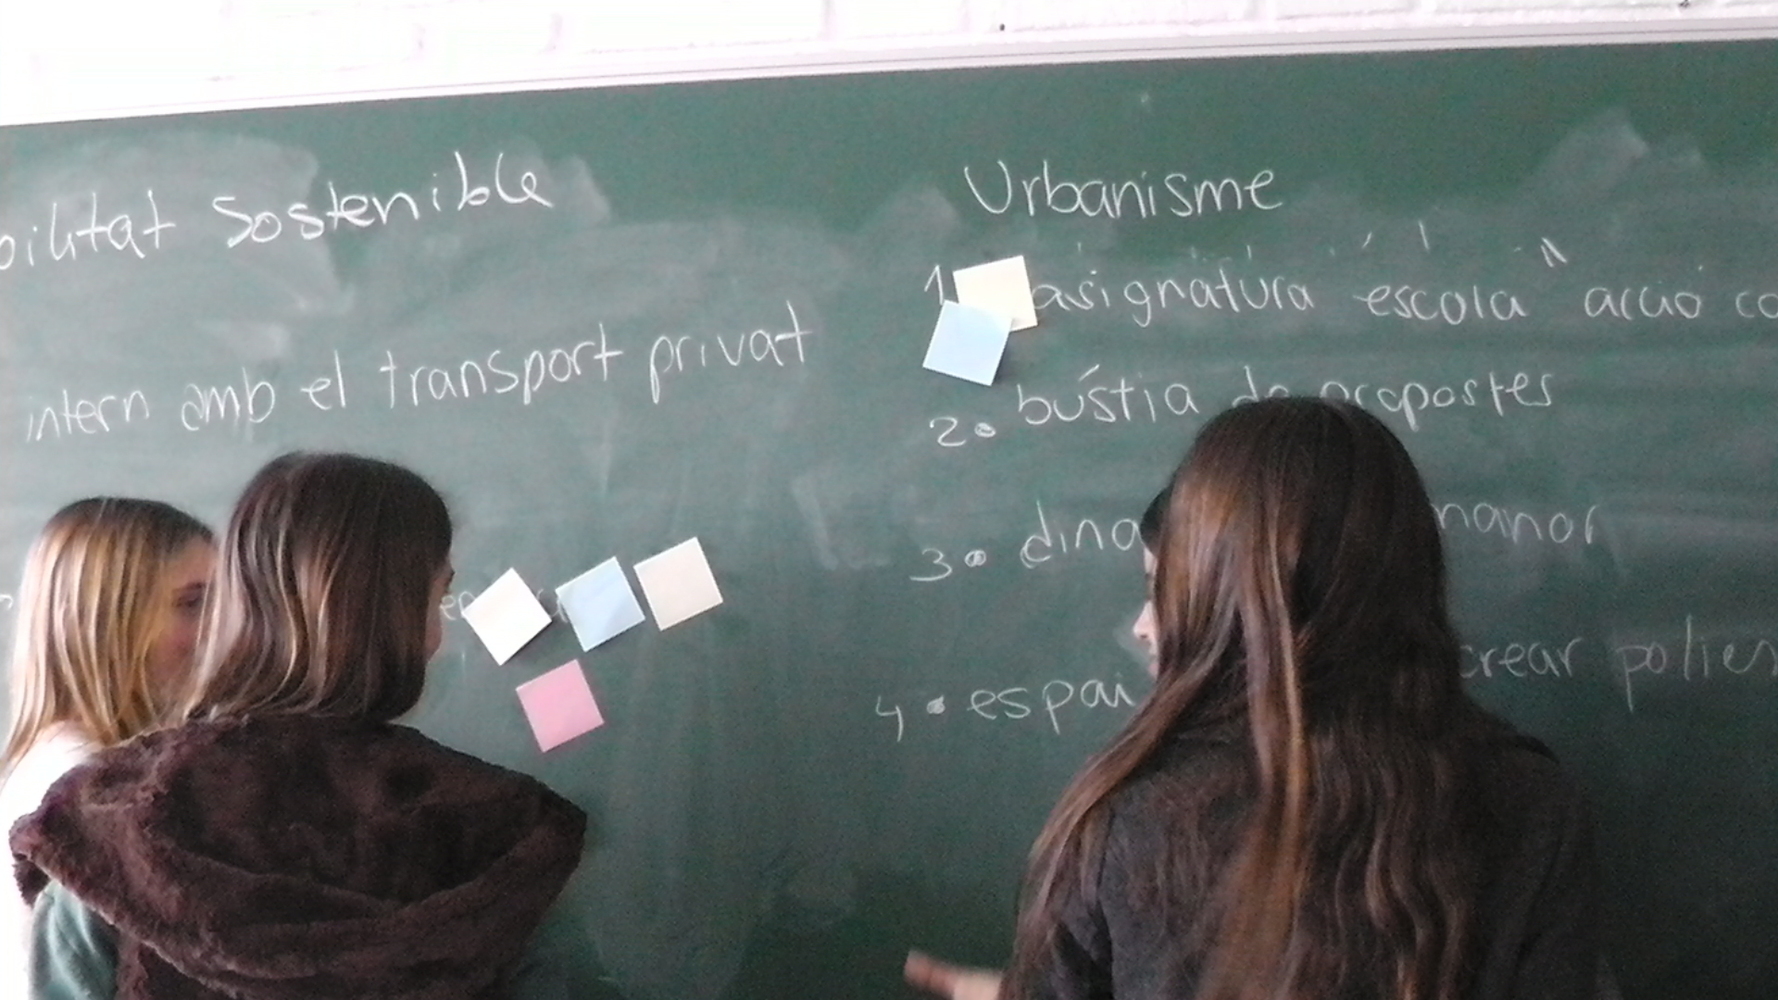 bilitat Sostenible
intern amb el transport privat
Urbanisme
1 asignatura escola " acció co
2. bústia de propostes
3. dina
4. espai crear polies